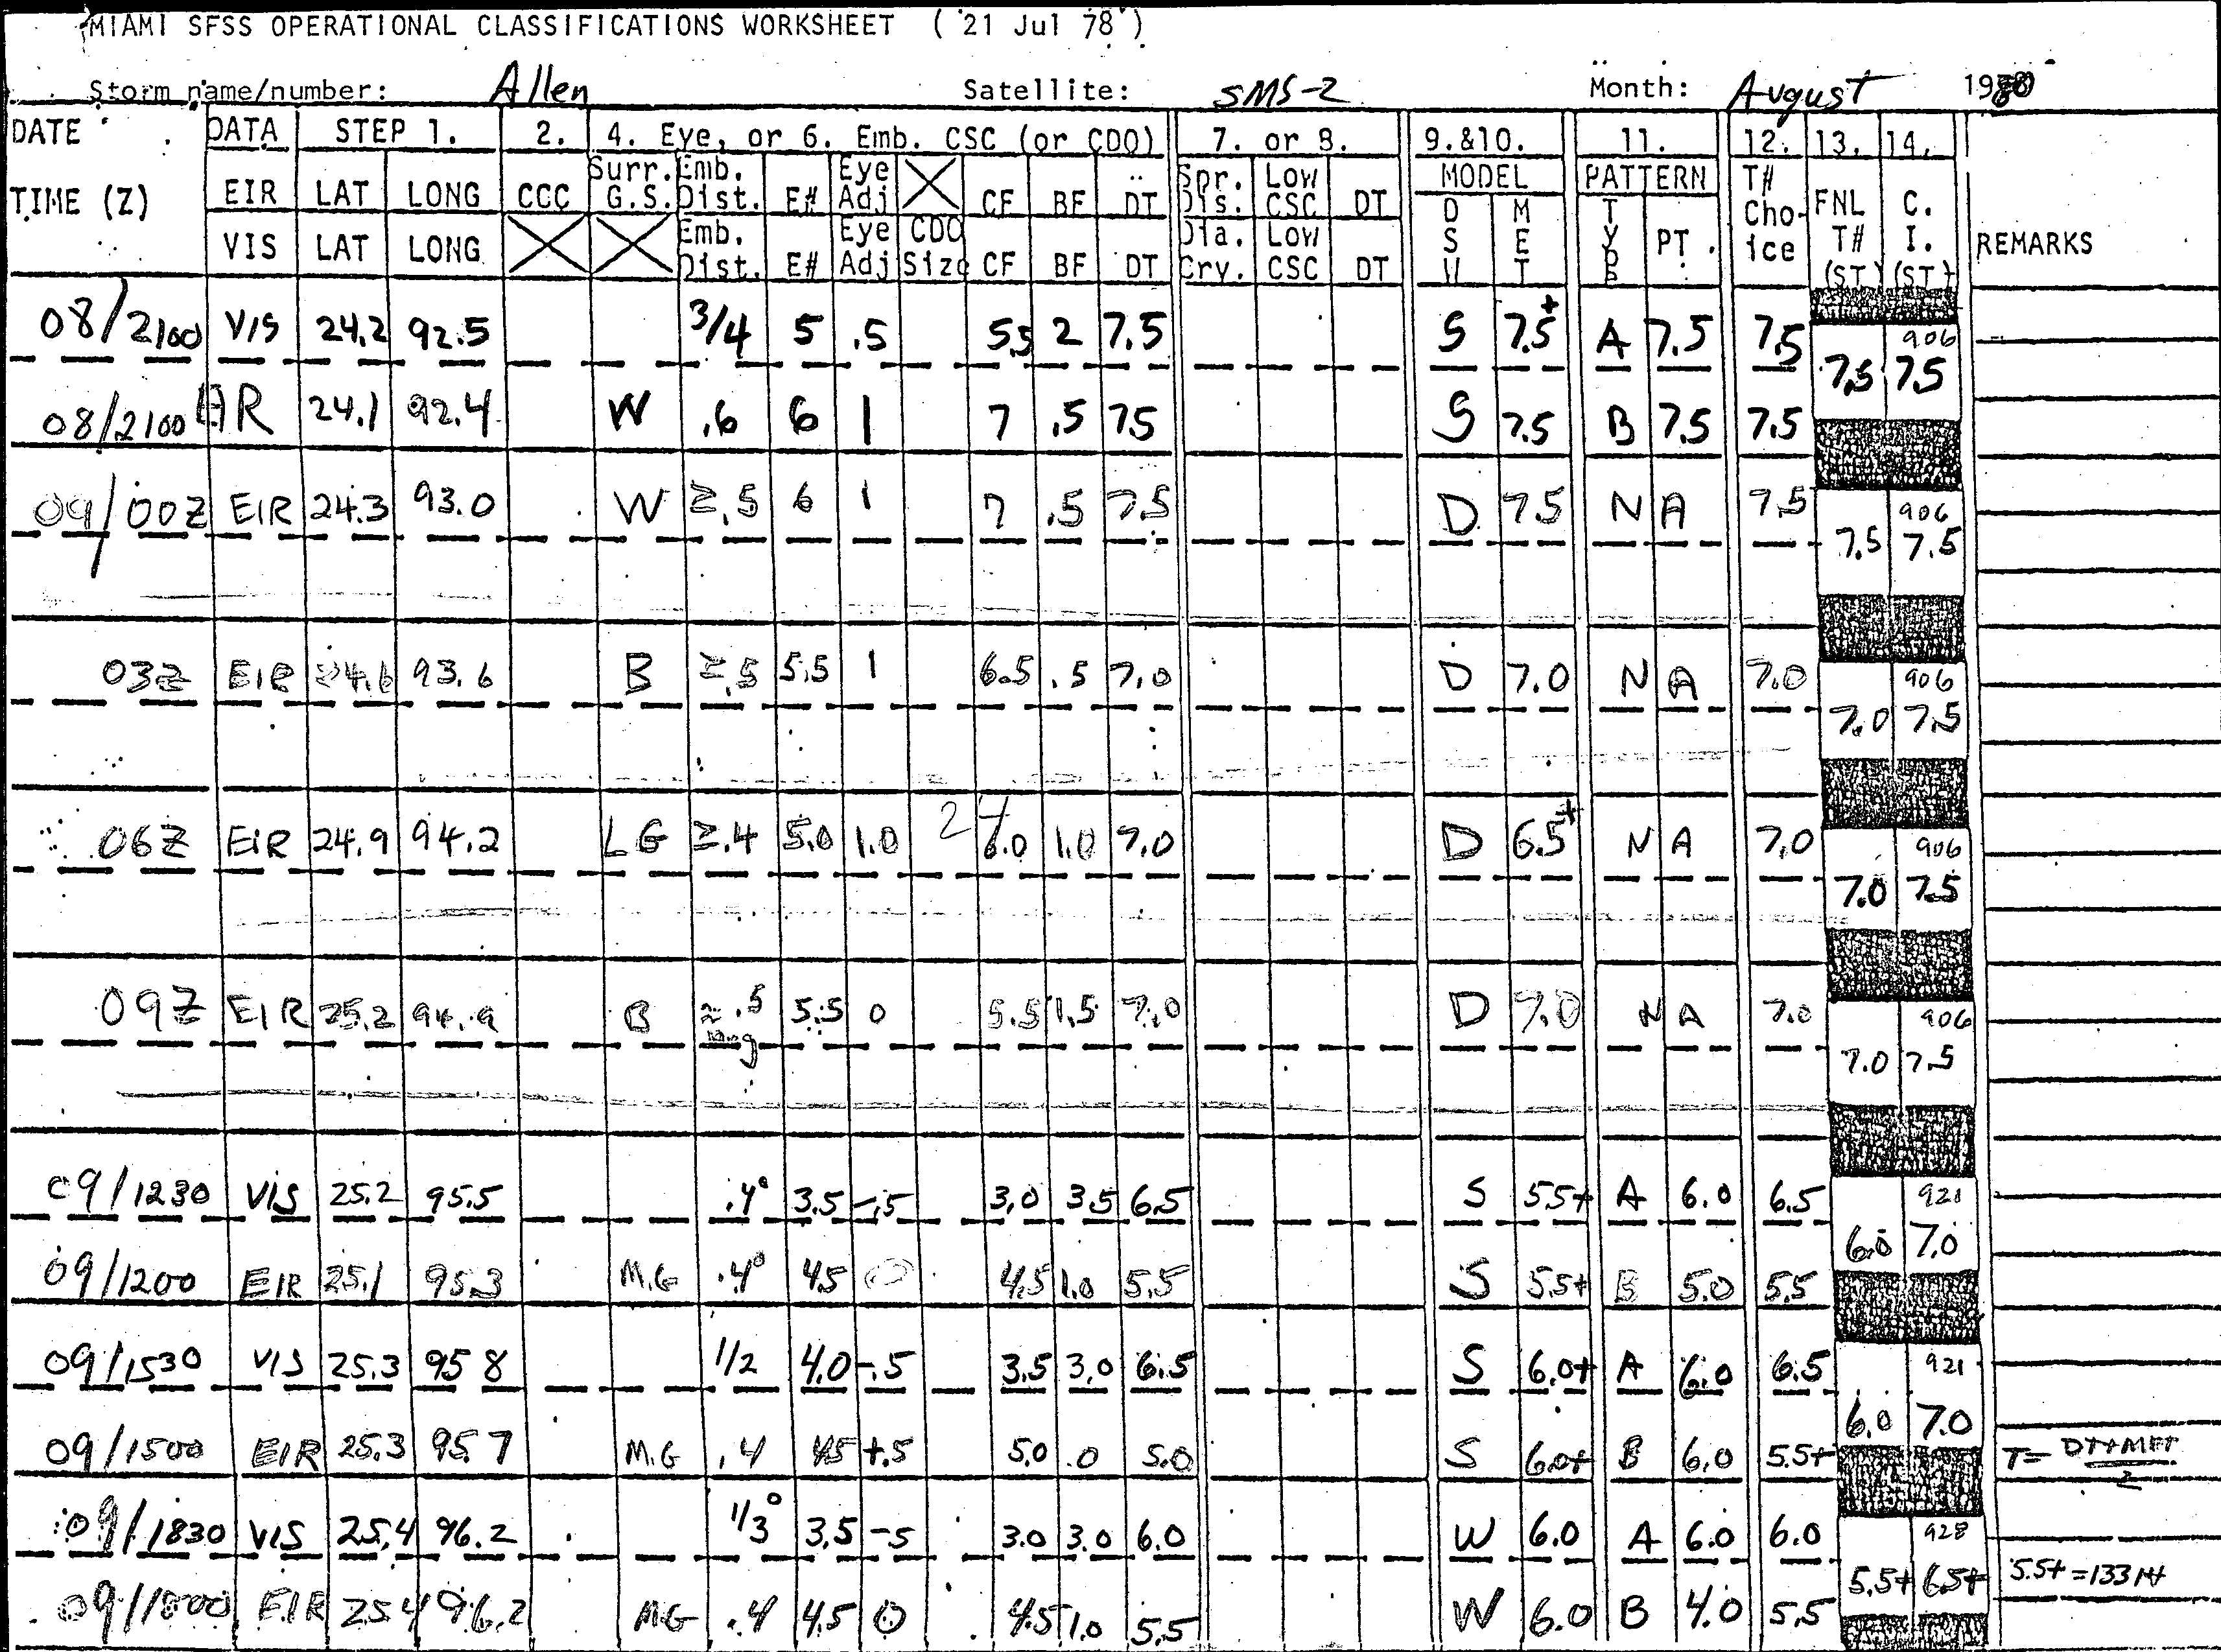 MIAMI SFSS OPERATIONAL CLASSIFICATIONS WORKSHEET ( 21 Jul 78 )
Storm name/number: Allen Satellite: SMS-2 Month: August 1980
DATE DATA STEP 1. 2. 4. Eye, or 6. Emb. CSC (or CDO) 7. or 8. 9.&10. 11. 12. 13. 14.
TIME (Z) EIR LAT LONG CCC Surr. G.S. Emb. Dist. E# Eye Adj CF BF DT Spr. Dis. Low CSC DT MODEL PATTERN T# Choice FNL T# (ST) C. I. (ST) REMARKS
VIS LAT LONG Emb. Dist. E# Eye Adj CDO Size CF BF DT Dia. Cry. Low CSC DT D S W M E T TYPE PT.
08/2100 VIS 24.2 92.5 3/4 5 .5 5.5 2 7.5 S 7.5+ A 7.5 7.5 906
7.5 7.5
08/2100 IR 24.1 92.4 W .6 6 1 7 .5 7.5 S 7.5 B 7.5 7.5
09/00Z EIR 24.3 93.0 W ≥.5 6 1 7 .5 7.5 D 7.5 NA 7.5 906
7.5 7.5
03Z EIR 24.6 93.6 B ≥.5 5.5 1 6.5 .5 7.0 D 7.0 NA 7.0 906
7.0 7.5
06Z EIR 24.9 94.2 LG ≥.4 5.0 1.0 6.0 1.0 7.0 D 6.5+ NA 7.0 906
7.0 7.5
09Z EIR 25.2 94.9 B ≈.5 5.5 0 5.5 1.5 7.0 D 7.0 NA 7.0 906
7.0 7.5
09/1230 VIS 25.2 95.5 .4° 3.5 -.5 3.0 3.5 6.5 S 5.5+ A 6.0 6.5 921
6.0 7.0
09/1200 EIR 25.1 95.3 M.G .4° 4.5 0 4.5 1.0 5.5 S 5.5+ B 5.0 5.5
09/1530 VIS 25.3 95 8 1/2 4.0 -.5 3.5 3.0 6.5 S 6.0+ A 6.0 6.5 921
6.0 7.0
09/1500 EIR 25.3 95.7 M.G .4 4.5 +.5 5.0 .0 5.0 S 6.0+ B 6.0 5.5+ T= DT+MET
2
09/1830 VIS 25.4 96.2 1/3° 3.5 -5 3.0 3.0 6.0 W 6.0 A 6.0 6.0 928
5.5+ 6.5+ 5.5+ =133 kt
09/1800 EIR 25.4 96.2 MG .4 4.5 0 4.5 1.0 5.5 W 6.0 B 4.0 5.5